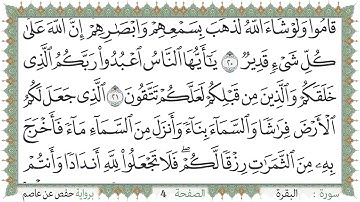 قَامُوا۟ وَلَوْ شَآءَ ٱللَّهُ لَذَهَبَ بِسَمْعِهِمْ وَأَبْصَٰرِهِمْ إِنَّ ٱللَّهَ عَلَىٰ
كُلِّ شَىْءٍ قَدِيرٌ ٢٠ يَٰٓأَيُّهَا ٱلنَّاسُ ٱعْبُدُوا۟ رَبَّكُمُ ٱلَّذِى
خَلَقَكُمْ وَٱلَّذِينَ مِن قَبْلِكُمْ لَعَلَّكُمْ تَتَّقُونَ ٢١ ٱلَّذِى جَعَلَ لَكُمُ
ٱلْأَرْضَ فِرَٰشًا وَٱلسَّمَآءَ بِنَآءً وَأَنزَلَ مِنَ ٱلسَّمَآءِ مَآءً فَأَخْرَجَ
بِهِۦ مِنَ ٱلثَّمَرَٰتِ رِزْقًا لَّكُمْ ۖ فَلَا تَجْعَلُوا۟ لِلَّهِ أَندَادًا وَأَنتُمْ
سورة : البقرة الصفحة 4 برواية حفص عن عاصم